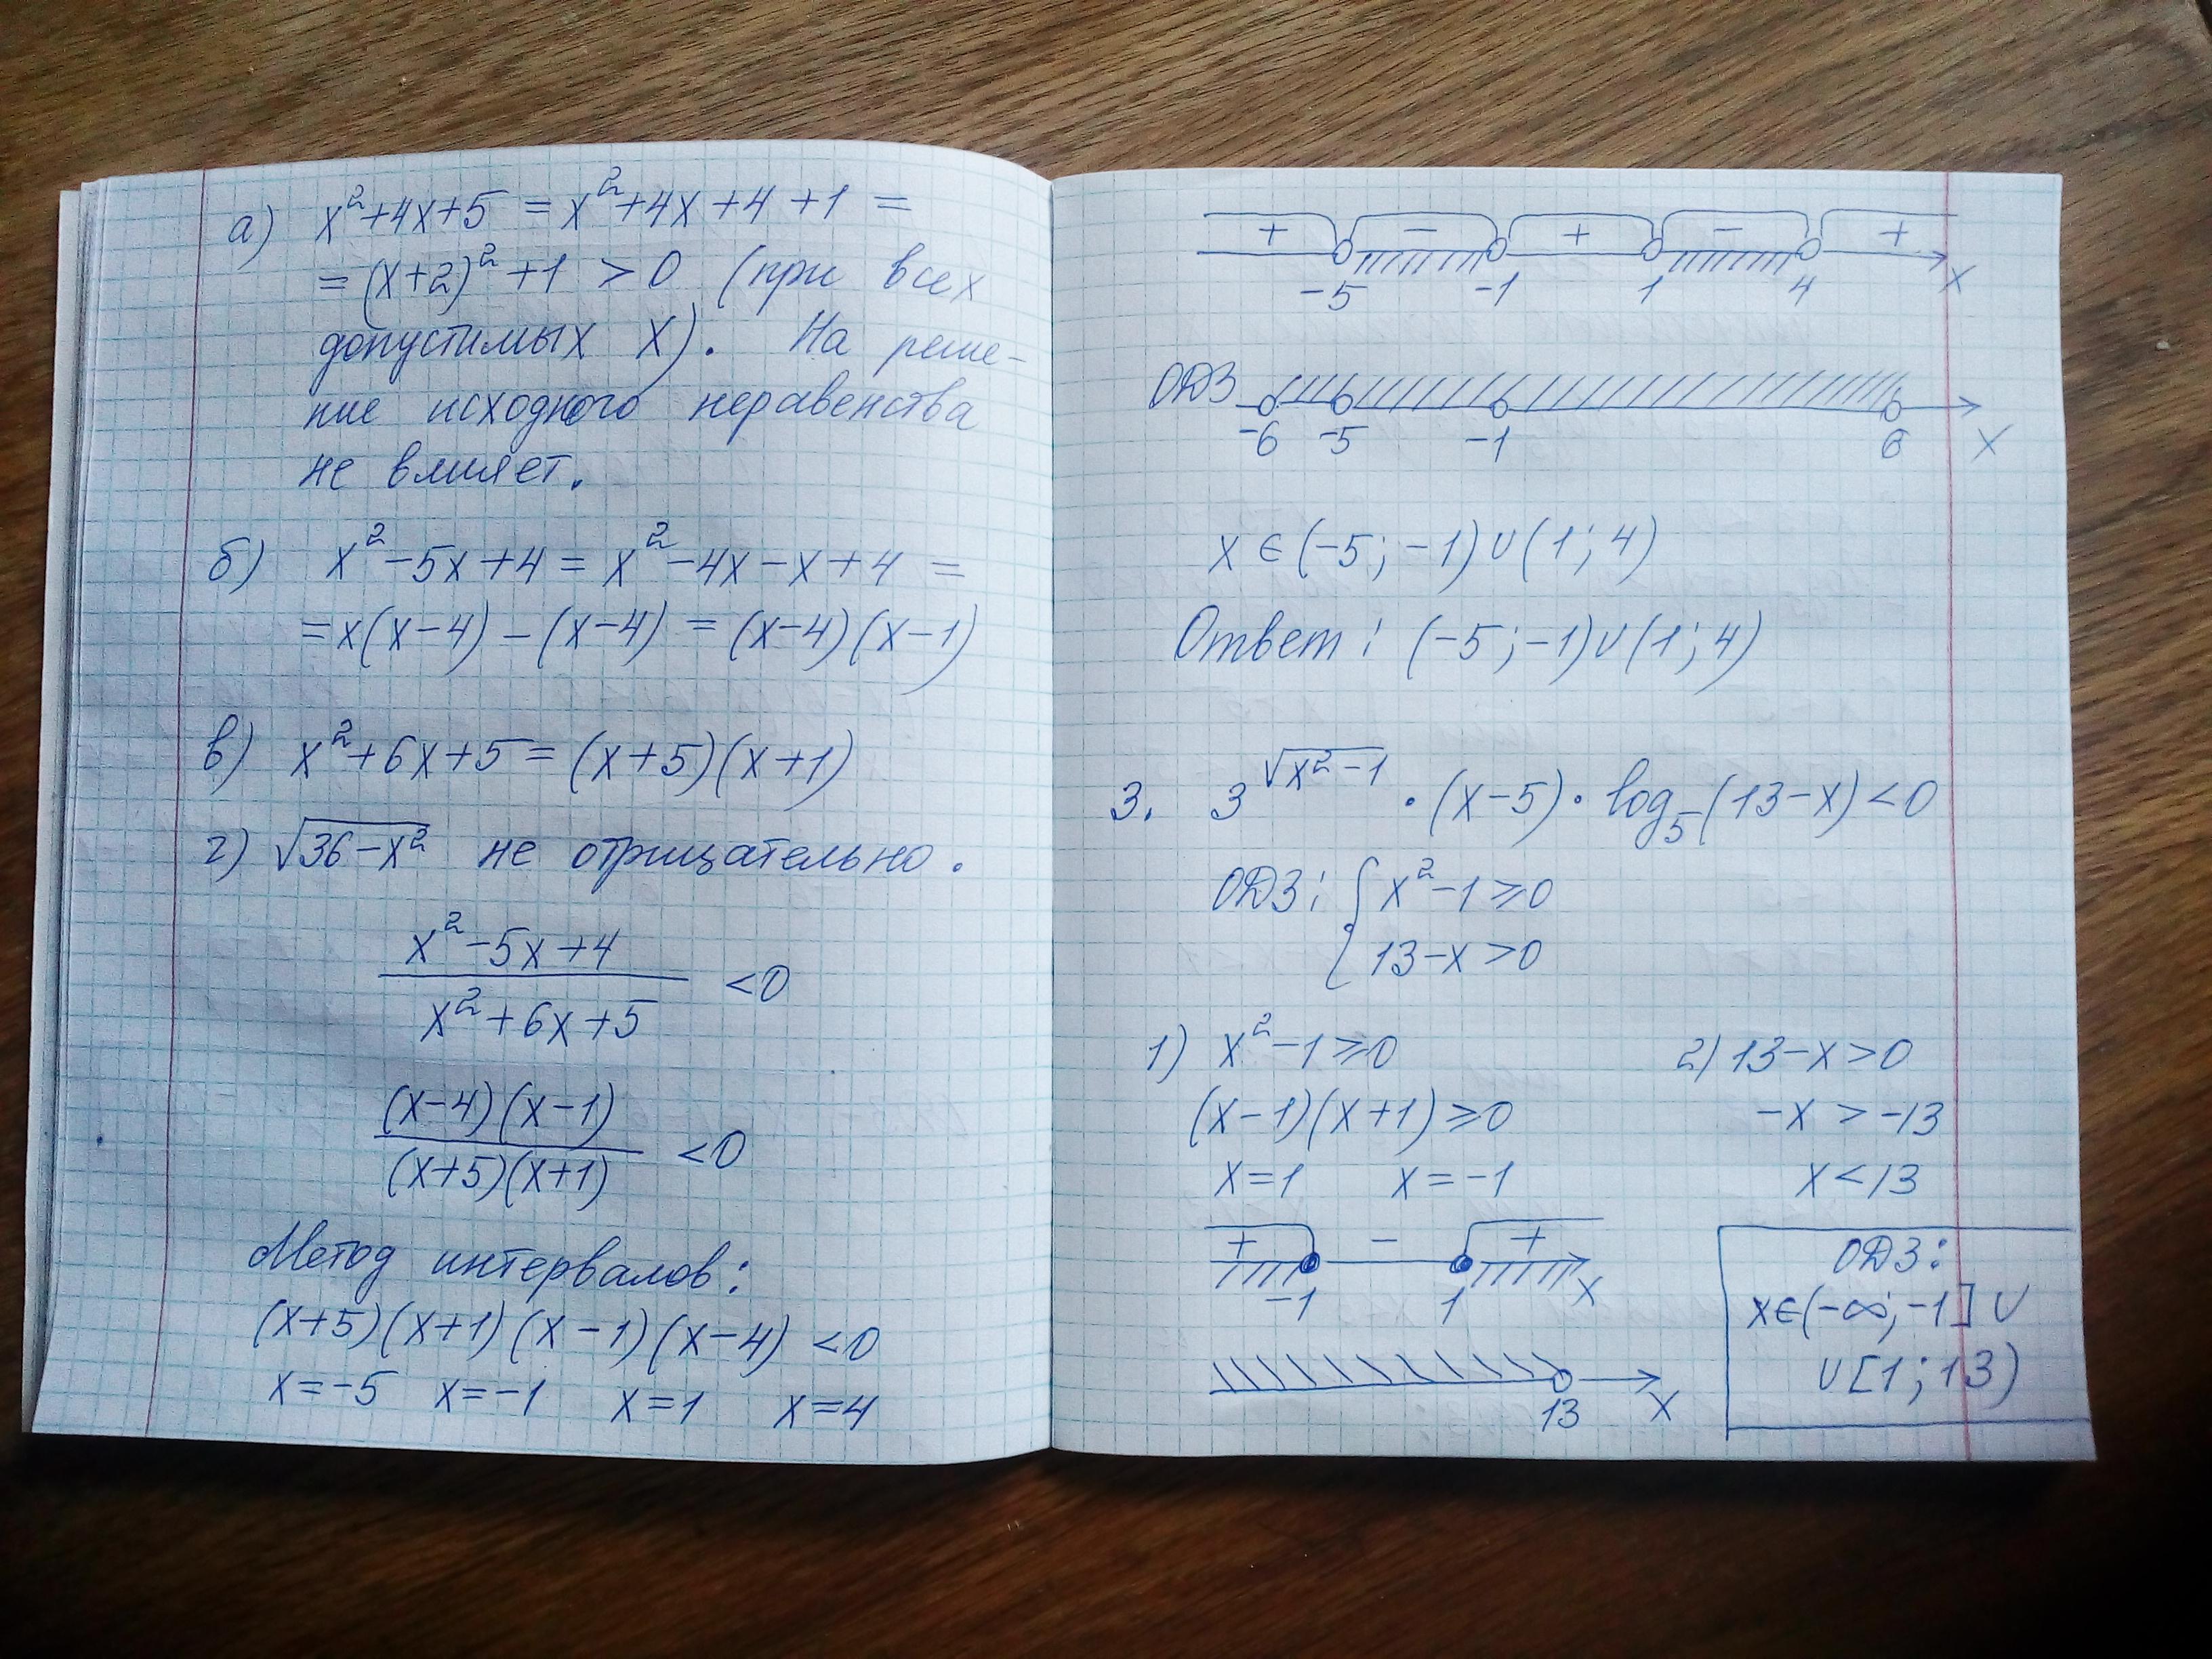 а) x²+4x+5 = x²+4x+4+1 =
= (x+2)²+1 > 0 (при всех
допустимых x). На реше-
ние исходного неравенства
не влияет.
б) x²-5x+4 = x²-4x-x+4 =
= x(x-4)-(x-4) = (x-4)(x-1)
в) x²+6x+5 = (x+5)(x+1)
г) √(36-x²) не отрицательно.
x²-5x+4
x²+6x+5 <0
(x-4)(x-1)
(x+5)(x+1) <0
Метод интервалов:
(x+5)(x+1)(x-1)(x-4) <0
x=-5 x=-1 x=1 x=4
+ - + - +
-5 -1 1 4 x
ОДЗ
-6 -5 -1 6 x
x ∈ (-5; -1)∪(1; 4)
Ответ: (-5; -1)∪(1; 4)
3. 3^√(x²-1) · (x-5) · log₅(13-x) <0
ОДЗ: { x²-1 ⩾ 0
13-x > 0
1) x²-1 ⩾ 0 2) 13-x > 0
(x-1)(x+1) ⩾ 0 -x > -13
x=1 x=-1 x < 13
+ - +
-1 1 x
13 x
ОДЗ:
x∈(-∞; -1] ∪
∪ [1; 13)